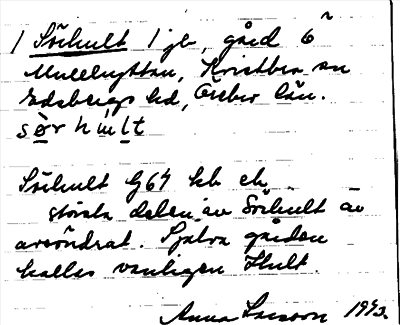 1 Sörhult 1 jb, gård 6
Mullhyttan, Kvistbro sn
Edsbergs hd, Örebro län.
sørhult
Sörhult G67 kb ek
största delen av Sörhult är
avsöndrat. Själva gården
kallas vanligen Hult.
Anna Larsson 1943.